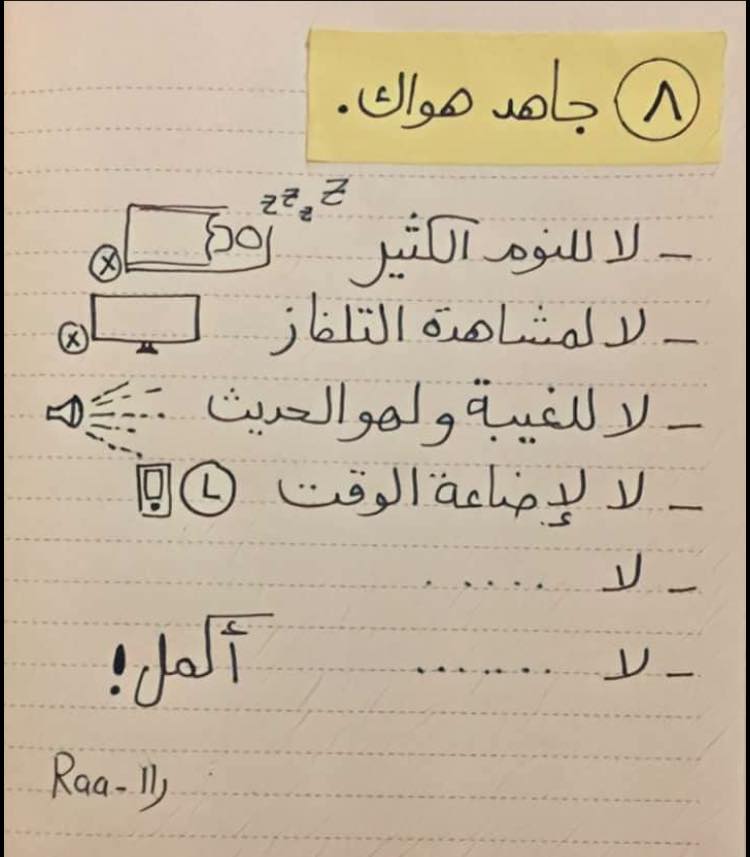 ٨ جاهد هواك.
- لا للنوم الكثير zzzz
- لا لمشاهدة التلفاز
- لا للغيبة ولهو الحديث
- لا لإضاعة الوقت
- لا .....
- لا .......
أكمل!
Raa-راا